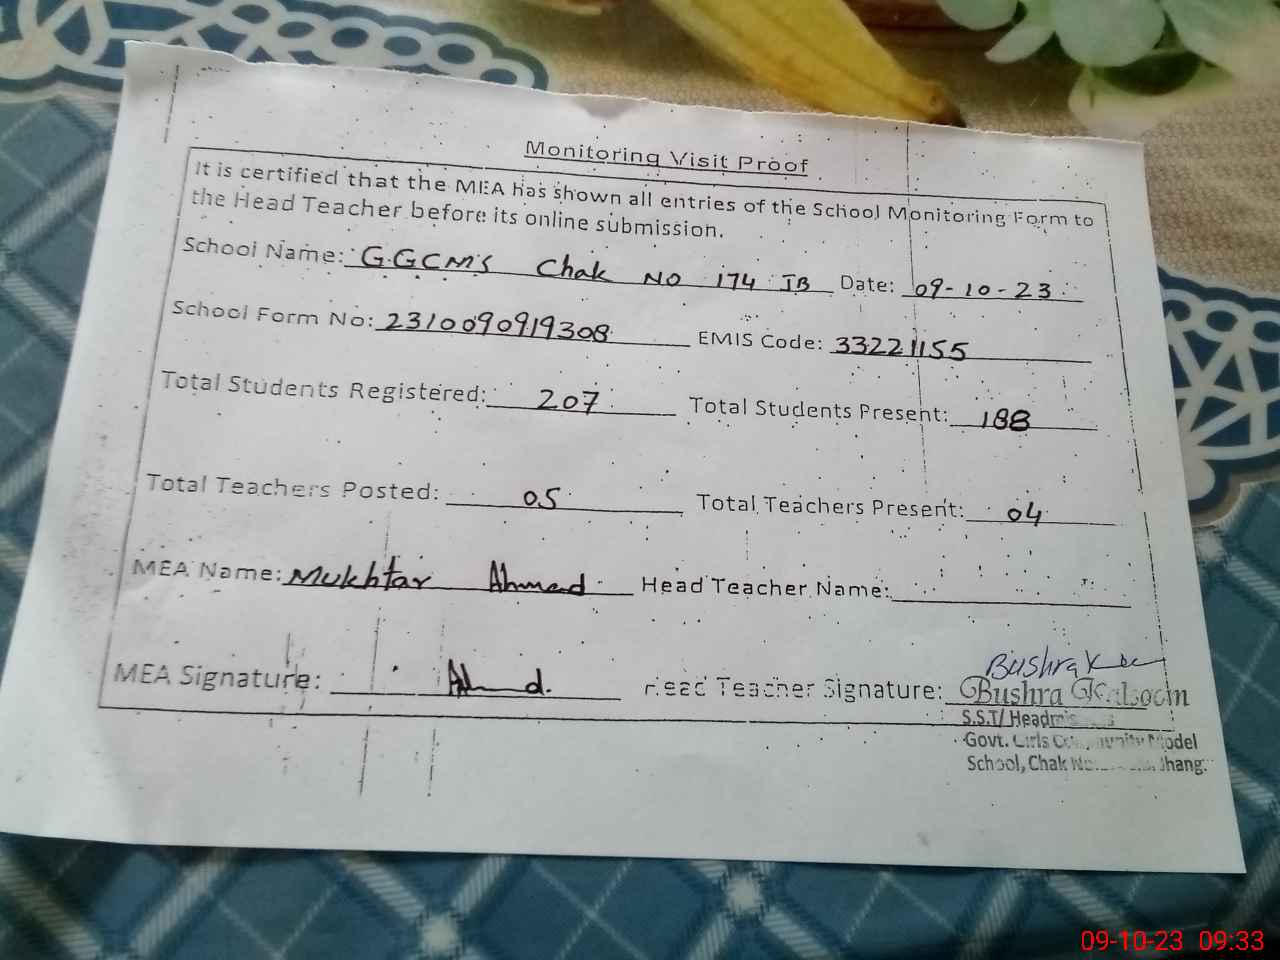 Monitoring Visit Proof
It is certified that the MEA has shown all entries of the School Monitoring Form to
the Head Teacher before its online submission.
School Name: G.GCMS Chak NO 174 JB Date: 09-10-23
School Form No: 2310090919308 EMIS Code: 33221155
Total Students Registered: 207 Total Students Present: 188
Total Teachers Posted: 05 Total Teachers Present: 04
MEA Name: Mukhtar Ahmad Head Teacher Name:
MEA Signature: Head Teacher Signature: Bushra
Bushra Kalsoom
S.S.T/
Govt. Girls Community Model
School, Chak Jhang
09-10-23 09:33